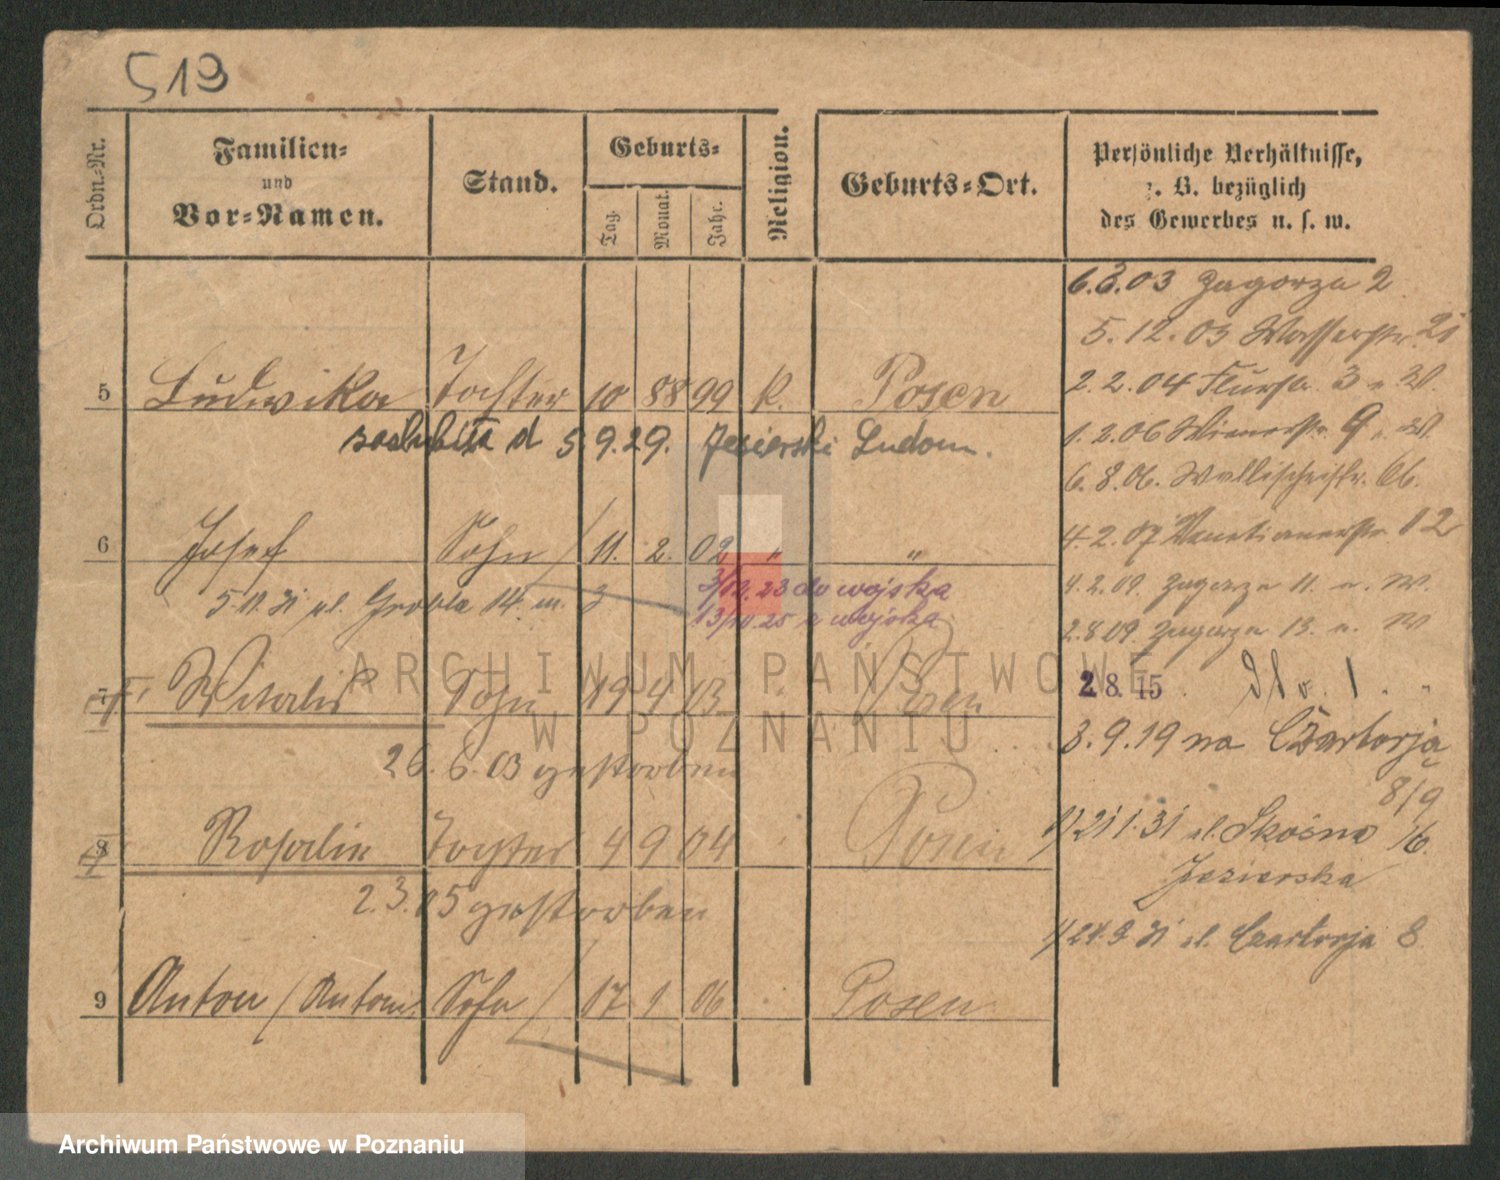 519
Ordn.-Nr.
Familien-
und
Vor-Namen.
Stand.
Geburts-
Tag.
Monat.
Jahr.
Religion.
Geburts-Ort.
Persönliche Verhältnisse,
z. B. bezüglich
des Gewerbes u. s. w.
6.3.03 Zagorze 2
5.12.03 Wasserstr. 21
5 Ludwika Tochter 10 88 99 K. Posen
2.2.04 Flurstr. 3 n. W.
1.2.06 Wienerstr. 9 n. W.
zaslubiła d 5.9.29. Jezierski Ludom.
6.8.06. Wallischeistr. 66.
6 Josef Sohn 11. 2. 02 " "
4.2.07 Venetianerstr. 12
4.2.09. Zagorze 11. n. W.
3/12.23 do wojska
5.11.31 ul. Grobla 14. m. 3
13/10.25 z wojska
2.8.09. Zagorze 13. n. W
7 Witalis Sohn 19 4 03 Posen
2 8. 15
3.9.19 na Czartorja
8/9
26. 6. 03 gestorben
8 Rosalie Tochter 4 9 04 Posen
21 1.31 ul. Skośna 16.
Jezierska
2.3.05 gestorben
24.9.31 ul. Czartorja 8
9 Anton / Antoni Sohn 17 1 06 Posen
ARCHIWUM PAŃSTWOWE
W POZNANIU
Archiwum Państwowe w Poznaniu